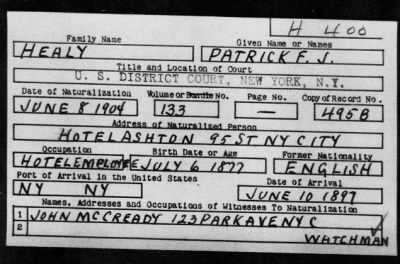 H 400
Family Name Given Name or Names
HEALY PATRICK F. J.
Title and Location of Court
U. S. DISTRICT COURT, NEW YORK, N.Y.
Date of Naturalization Volume or Bundle No. Page No. Copy of Record No.
JUNE 8 1904 133 — 495B
Address of Naturalized Person
HOTEL ASHTON 95 ST NY CITY
Occupation Birth Date or Age Former Nationality
HOTEL EMPLOYEE JULY 6 1877 ENGLISH
Port of Arrival in the United States Date of Arrival
NY NY JUNE 10 1897
Names, Addresses and Occupations of Witnesses To Naturalization
1 JOHN MCCREADY 123 PARK AVE NY C
2 WATCHMAN